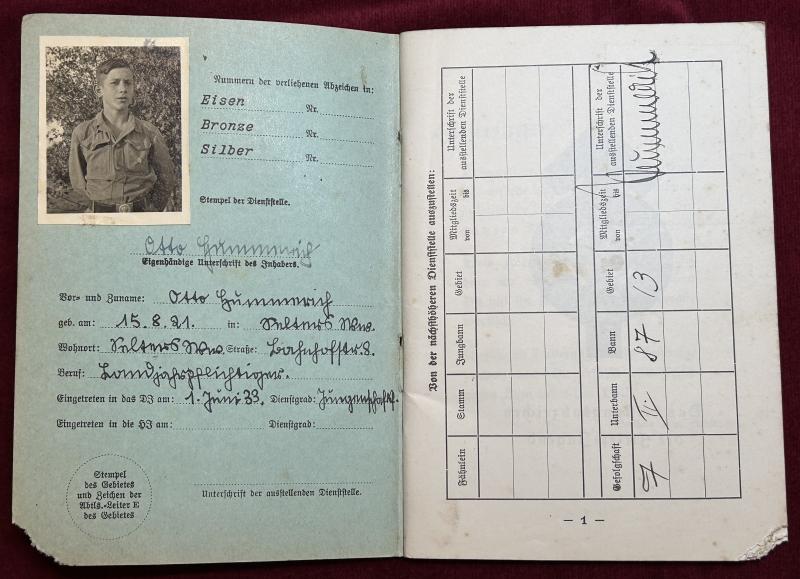 Nummern der verliehenen Abzeichen in:
Eisen Nr.
Bronze Nr.
Silber Nr.
Stempel der Dienststelle.
Otto Hummerich
Eigenhändige Unterschrift des Inhabers.
Vor- und Zuname: Otto Hummerich
geb. am: 15.8.21. in: Selters Ww.
Wohnort: Selters Ww. Straße: Bahnhofstr. 8.
Beruf: Landjahrpflichtiger.
Eingetreten in das DJ am: 1. Juni 33. Dienstgrad: Jungenschaftsf.
Eingetreten in die HJ am: Dienstgrad:
Stempel
des Gebietes
und Zeichen der
Abtlg.-Leiter E
des Gebietes
Unterschrift der ausstellenden Dienststelle.
Von der nächsthöheren Dienststelle auszustellen:
Fähnlein Stamm Jungbann Gebiet Mitgliedszeit von bis Unterschrift der ausstellenden Dienststelle
Gefolgschaft Unterbann Bann Gebiet Mitgliedszeit von bis Unterschrift der ausstellenden Dienststelle
7 III. 87 13
— 1 —